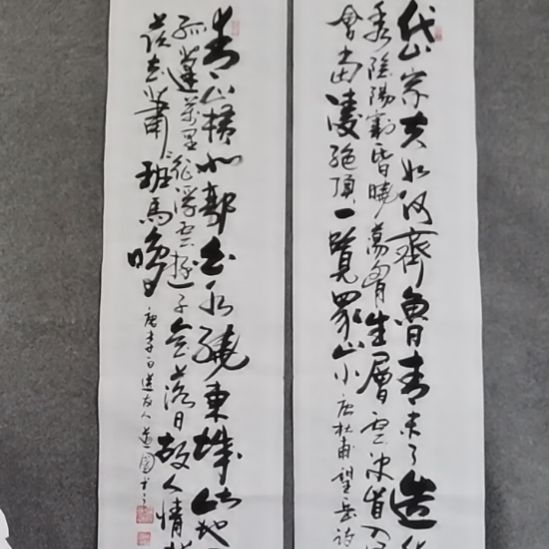 岱宗夫如何齊魯青未了造
秀陰陽割昏曉蕩胸生層雲決眥入
會當凌絕頂一覽眾山小唐杜甫望岳詩
青山橫北郭白水繞東城此地
孤蓬萬里征浮雲遊子意落日故人情
茲去蕭班馬鳴唐李白送友人